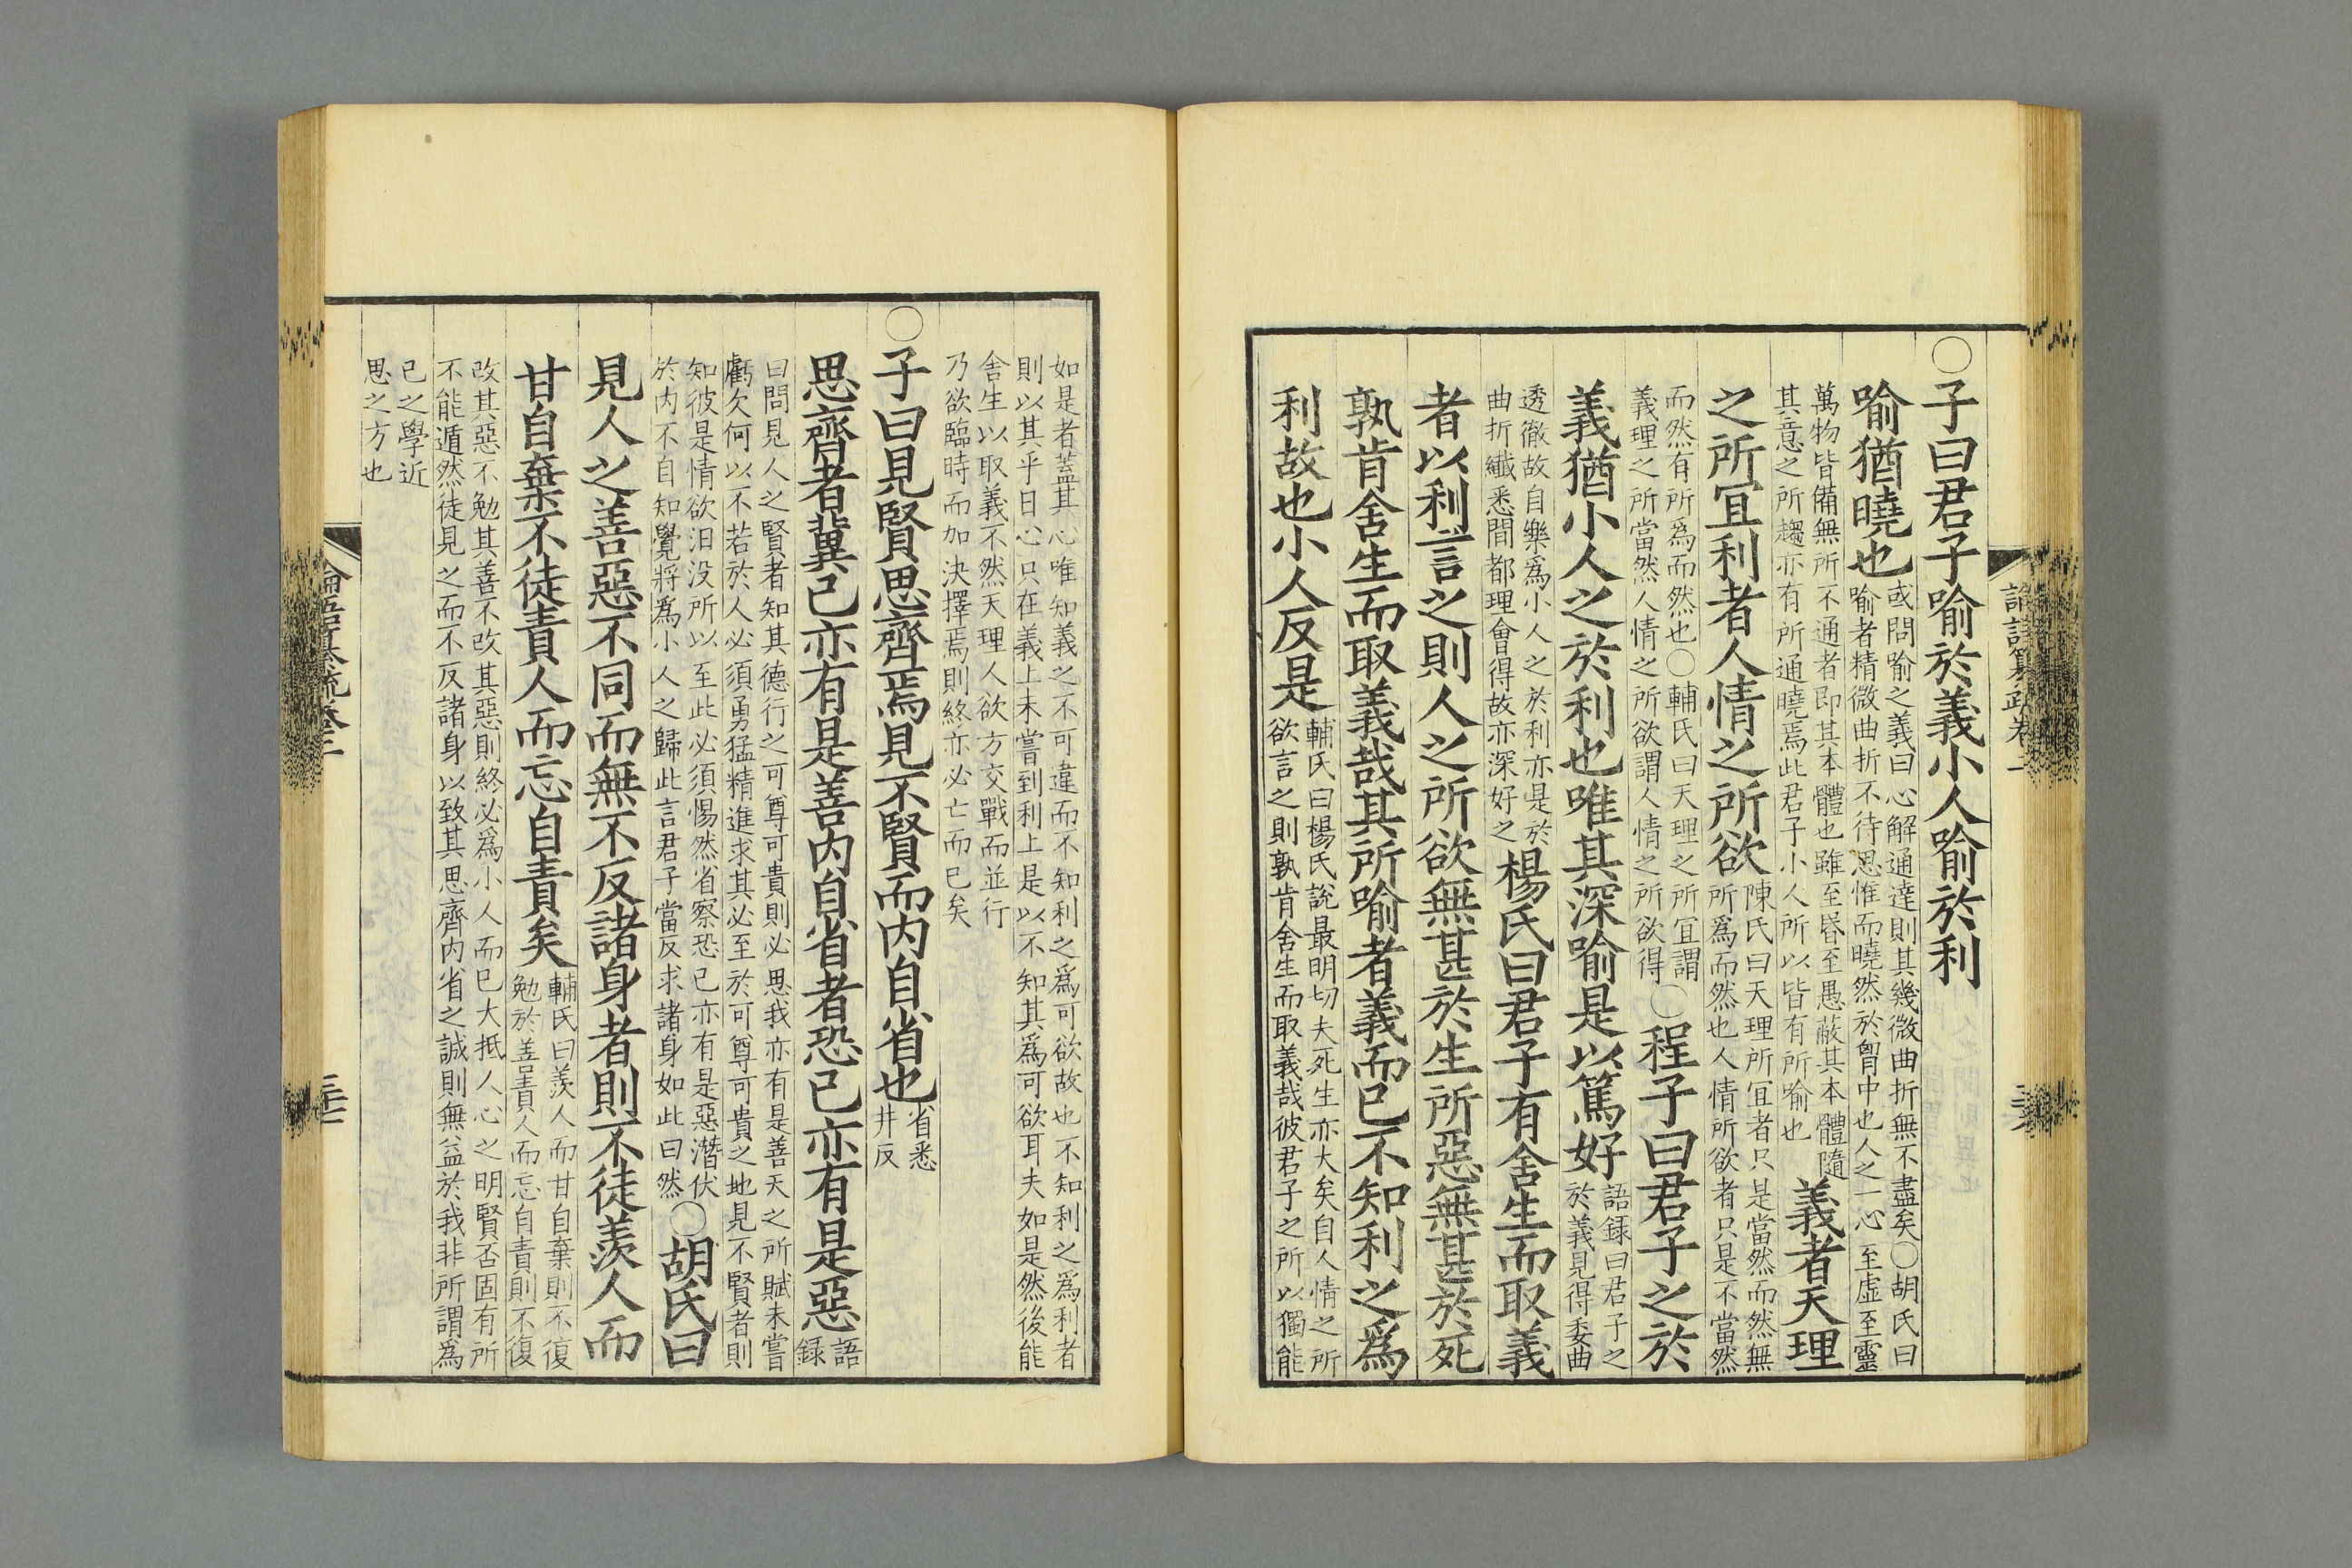 ○子曰君子喻於義小人喻於利
喻猶曉也
或問喻之義曰心解通達則其幾微曲折無不盡矣○胡氏曰
喻者精微曲折不待思惟而曉然於胷中也人之一心至虛至靈
萬物皆備無所不通者即其本體也雖至昏至愚蔽其本體隨
其意之所趨亦有所通曉焉此君子小人所以皆有所喻也
義者天理
之所冝利者人情之所欲
陳氏曰天理所冝者只是當然而然無
所爲而然也人情所欲者只是不當然
而然有所爲而然也○輔氏曰天理之所冝謂
義理之所當然人情之所欲謂人情之所欲得
○程子曰君子之於
義猶小人之於利也唯其深喻是以篤好
語録曰君子之
於義見得委曲
透徹故自樂爲小人之於利亦是於
曲折纖悉間都理會得故亦深好之
楊氏曰君子有舍生而取義
者以利言之則人之所欲無甚於生所惡無甚於死
孰肯舍生而取義哉其所喻者義而已不知利之爲
利故也小人反是
輔氏曰楊氏說最明切夫死生亦大矣自人情之所
欲言之則孰肯舍生而取義哉彼君子之所以獨能
如是者蓋其心唯知義之不可違而不知利之爲可欲故也不知利之爲利者
則以其平日心只在義上未嘗到利上是以不知其爲可欲耳夫如是然後能
舍生以取義不然天理人欲方交戰而並行
乃欲臨時而加決擇焉則終亦必亡而已矣
○子曰見賢思齊焉見不賢而内自省也
省悉
井反
思齊者冀已亦有是善内自省者恐已亦有是惡
語
録
曰問見人之賢者知其德行之可尊可貴則必思我亦有是善天之所賦未嘗
虧欠何以不若於人必須勇猛精進求其必至於可尊可貴之地見不賢者則
知彼是情欲汨没所以至此必須惕然省察恐已亦有是惡潛伏
於内不自知覺將爲小人之歸此言君子當反求諸身如此曰然
○胡氏曰
見人之善惡不同而無不反諸身者則不徒羨人而
甘自棄不徒責人而忘自責矣
輔氏曰羨人而甘自棄則不復
勉於善責人而忘自責則不復
改其惡不勉其善不改其惡則終必爲小人而已大抵人心之明賢否固有所
不能遁然徒見之而不反諸身以致其思齊内省之誠則無益於我非所謂爲
已之學近
思之方也